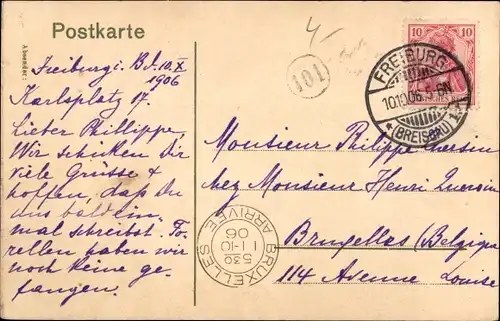 Postkarte
Absender:
Freiburg i. Bd. 10. X
1906
Karlsplatz 17.
Lieber Phillippe,
Wir schicken Dir
viele Grüsse &
hoffen, daß Du
uns bald ein-
mal schreibst. Fo-
rellen haben wir
noch keine ge-
fangen.
4-
101
10 10
FREIBURG
10.10.06. 5-6N
(BREISGAU)
Monsieur Philippe
chez Monsieur Henri
Bruxelles (Belgique
114 Avenue Louise
BRUXELLES
530
11-10
06
ARRIVEE